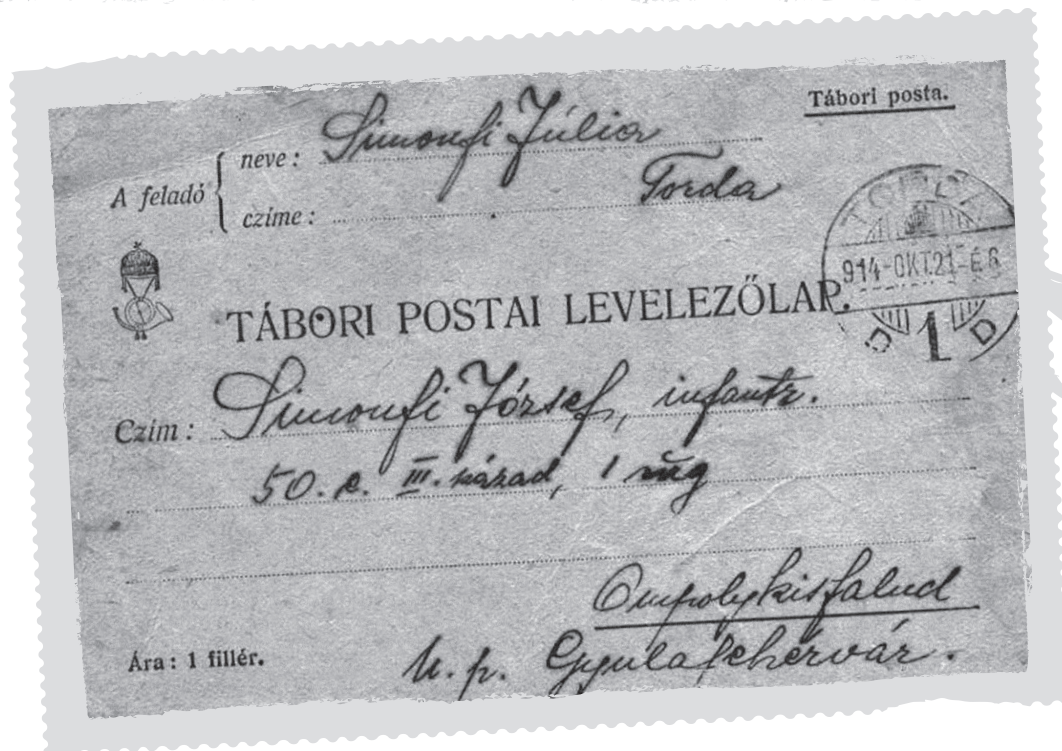 Tábori posta.
A feladó
neve: Simonfi Júlia
czíme: Torda
914-OKT.21-É6
1
TÁBORI POSTAI LEVELEZŐLAP.
Czím: Simonfi József, infantr.
50. e. III. század, 1
Ompolykisfalud
Ára: 1 fillér.
u. p. Gyulafehérvár.